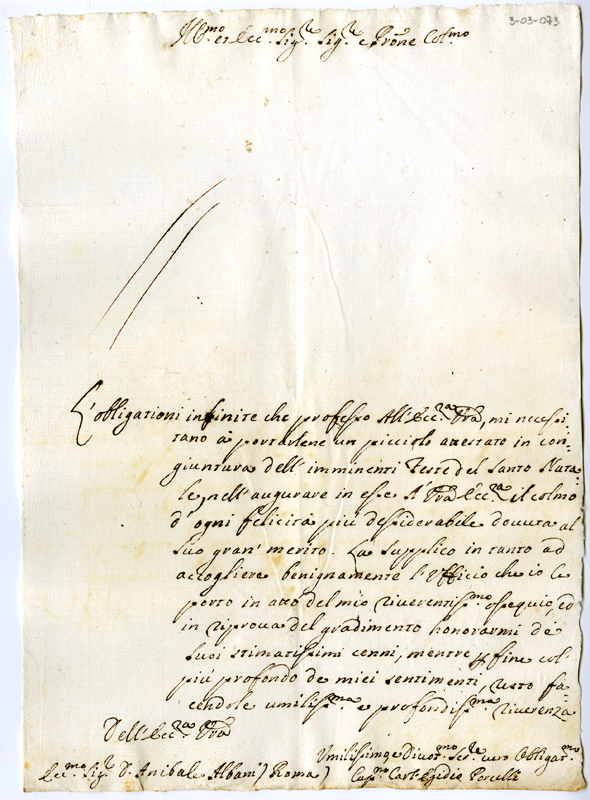 3-03-073
Ill.mo et Ecc.mo Sig.re Sig.re e Prōne Col.mo
L'obligationi infinite che professo All'Ecc.za Vrā, mi necessi-
tano à portarlene un picciolo attestato in con-
giuntura dell'imminenti Feste del Santo Nata-
le, nell'augurare in esse A' Vrā Ecc.za il colmo
d'ogni felicità più dessiderabile douuta al
suo gran' merito. La supplico in tanto ad
accogliere benignamente l'Vfficio che io le
porto in atto del mio riuerentiss.mo ossequio, ed
in riproua del gradimento honorarmi de
suoi stimatissimi cenni, mentre fine col
più profondo de miei sentimenti, resto fa-
cendole umiliss.ma e profondiss.ma riuerenza
Dell'Ecc.za Vrā
Vmilissimo e Diuot.mo Ser.re uero Obligat.mo
Ecc.mo Sig.re D. Anibale Albani (Roma) Cap.no Carl'Egidio Porcelli